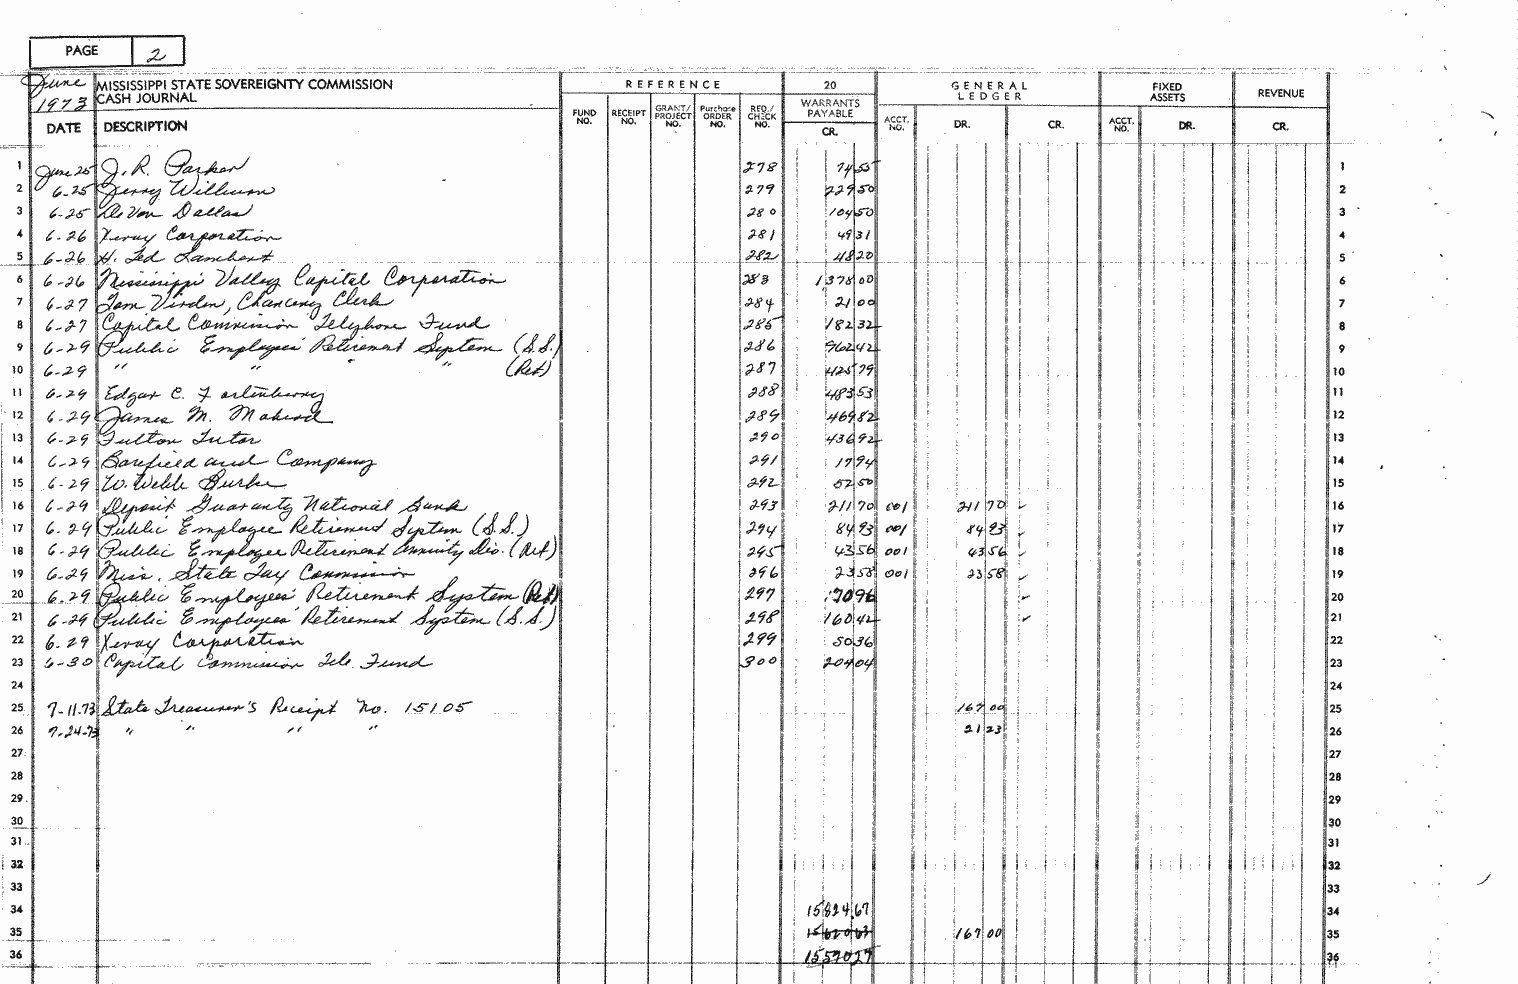 PAGE 2
June 1973 MISSISSIPPI STATE SOVEREIGNTY COMMISSION REFERENCE 20 GENERAL LEDGER FIXED ASSETS REVENUE
CASH JOURNAL
DATE DESCRIPTION FUND NO. RECEIPT NO. GRANT/PROJECT NO. Purchase ORDER NO. REQ./CHECK NO. WARRANTS PAYABLE CR. ACCT. NO. DR. CR. ACCT. NO. DR. CR.
1 June 25 J. R. Parker 278 74 55 1
2 6-25 Jerry William 279 229 50 2
3 6-25 DeVon Dallas 280 104 50 3
4 6-26 Xerox Corporation 281 49 31 4
5 6-26 H. Ted Lambert 282 48 20 5
6 6-26 Mississippi Valley Capital Corporation 283 1378 00 6
7 6-27 Tom Virden, Chancery Clerk 284 21 00 7
8 6-27 Capital Commission Telephone Fund 285 182 32 8
9 6-29 Public Employees' Retirement System (S.S.) 286 962 42 9
10 6-29 " " " " (Ret) 287 425 79 10
11 6-29 Edgar C. Fortenberry 288 483 53 11
12 6-29 James M. 289 469 82 12
13 6-29 Fulton Tutor 290 436 92 13
14 6-29 Barefield and Company 291 17 94 14
15 6-29 W. Webb Burke 292 52 50 15
16 6-29 Deposit Guaranty National Bank 293 211 70 001 211 70 ✓ 16
17 6-29 Public Employee Retirement System (S.S.) 294 84 93 001 84 93 ✓ 17
18 6-29 Public Employee Retirement Annuity Div. (Ret) 295 43 56 001 43 56 ✓ 18
19 6-29 Miss. State Tax Commission 296 23 58 001 23 58 ✓ 19
20 6-29 Public Employees' Retirement System (Ret) 297 70 96 ✓ 20
21 6-29 Public Employees' Retirement System (S.S.) 298 160 42 ✓ 21
22 6-29 Xerox Corporation 299 50 36 22
23 6-30 Capital Commission Tele. Fund 300 204 04 23
24 24
25 7-11-73 State Treasurer's Receipt No. 15105 167 00 25
26 7-24-73 " " " " 21 23 26
27 27
28 28
29 29
30 30
31 31
32 32
33 33
34 15824.67 34
35 15620 63 167 00 35
36 15570 27 36